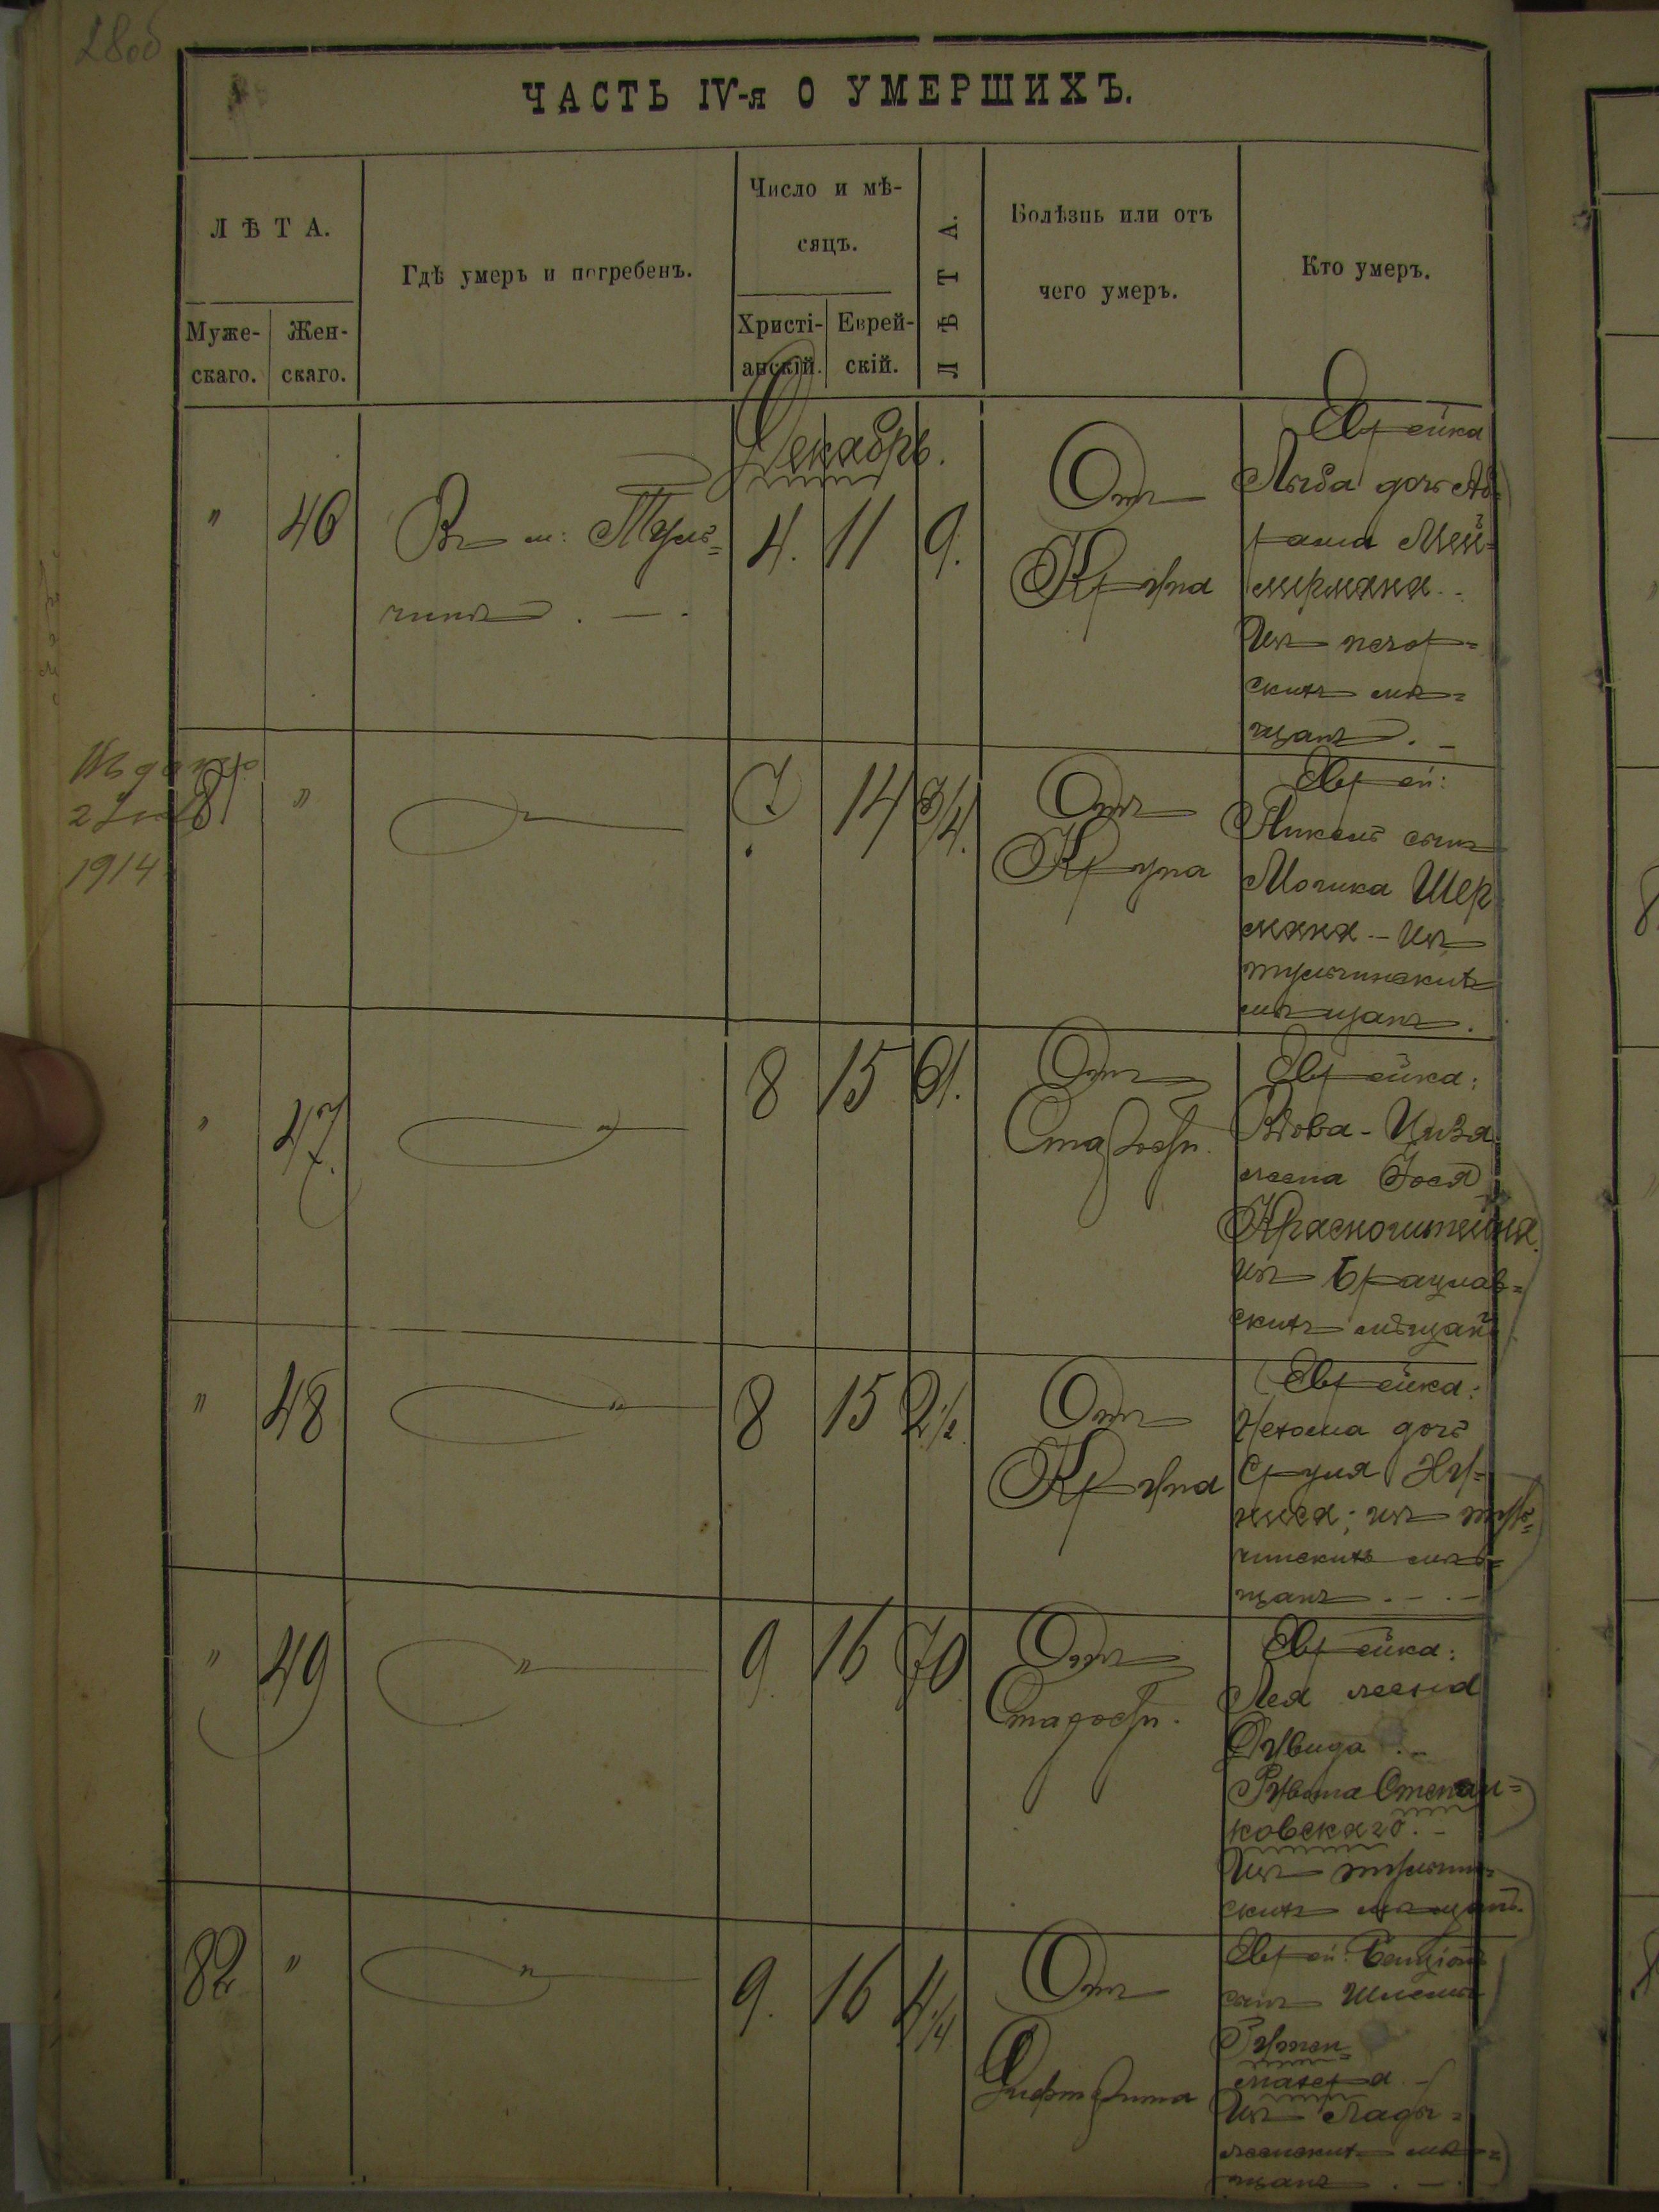 28об
ЧАСТЬ IV-я О УМЕРШИХЪ.
ЛѢТА.
Муже-
скаго.
Жен-
скаго.
Гдѣ умеръ и погребенъ.
Число и мѣ-
сяцъ.
Христі-
анскій.
Еврей-
скій.
ЛѢТА.
Болѣзнь или отъ
чего умеръ.
Кто умеръ.
Декабрь.
" 46
Въ м: Туль=
чинѣ . — .
4. 11 9.
Отъ
Крупа
Еврейка
дочь Аб=
рама
Изъ печор=
скихъ мѣ=
щанъ. –
1914
81 "
" —
7. 14 3/4.
Отъ
Крупа
Еврей:
сынъ
Мошка Шер
мана – Изъ
тульчинскихъ
мѣщанъ.
" 47.
" —
8 15 61.
Отъ
Старости.
Еврейка:
Вдова –
жена Іося
Краснoштейна.
Изъ Брацлав=
скихъ мѣщанъ
" 48
" —
8 15 2 1/2
Отъ
Крупа
Еврейка:
Нехома дочь
Сруля
изъ туль=
чинскихъ мѣ=
щанъ . – . –
" 49
" —
9. 16 70
Отъ
Старости.
Еврейка:
Лея жена
Дувида . –
Степан=
ковскаго. –
Изъ тульчин=
скихъ мѣщанъ.
82 "
" —
9. 16 4 1/4
Отъ
Дифтерита
Еврей: Бенціонъ
сынъ Шлемы
Гутен=
махера –
Изъ Лады=
женскихъ мѣ=
щанъ . –